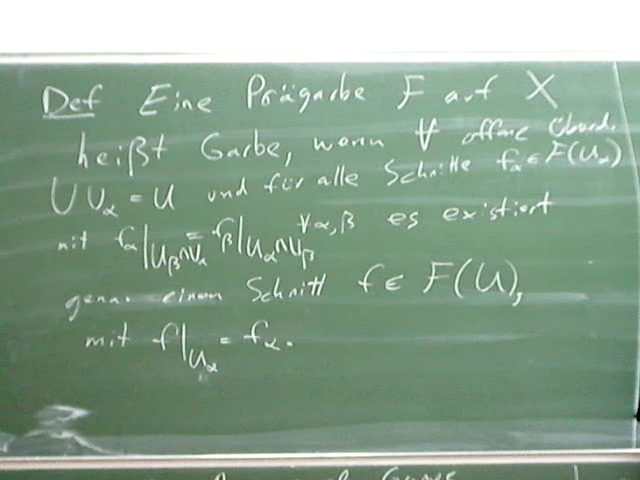 Def Eine Prägarbe F auf X
heißt Garbe, wenn ∀ offene Überd.
⋃ U_α = U und für alle Schnitte f_α ∈ F(U_α)
mit f_α|_{U_β∩U_α} = f_β|_{U_α∩U_β} ∀α,β es existiert
genau einen Schnitt f ∈ F(U),
mit f|_{U_α} = f_α.